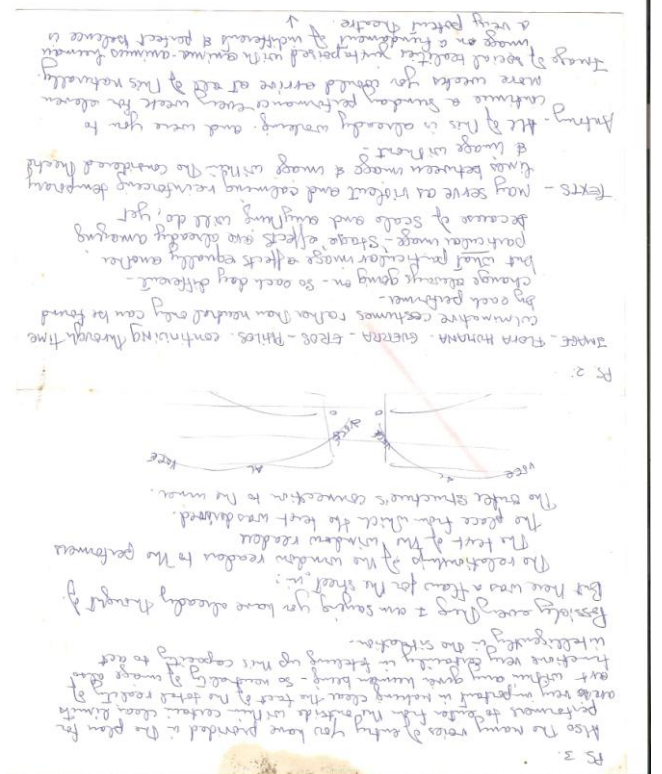 PS 3.
Also the many voices of entry you have provided in the plan for
performers to enter from the outside within certain clear limits
are also very important in making clear the fact of the total reality of
art within any given human being - so neutrality of image also
functions very centrally in filling up this capacity to act
intelligently in the situation.
Possibley every thing I am saying you have already thought of.
But here was a flaw for the sheet, in:
The relationship of the window readers to the performers
The text of the window readers
The place from which the text was derived.
The outer structure's connection to the inner.
VOICE
AL
VOICE
VOICE
VOICE
PS 2:
IMAGE - FLORA HUMANA. GUERRA - EROS - PHILOS. continuing through time
culminative costumes rather than neutral only can be found
by each performer -
change always going on - so each day different -
but what particular image effects equally another
particular image - stage effects are already amazing
because of scale and anything will do, yet
TEXTS - may serve as violent and calming reinforcing temporary
links between image & image within the considered
& image without -
Antony - All of this is already working. and were you to
continue a Sunday performance every week for eleven
more weeks you could arrive at all of this naturally.
Image of social realities juxtaposed with anima-animus human
image on a fundament of indifferent & perfect balance is
a very potent theatre.